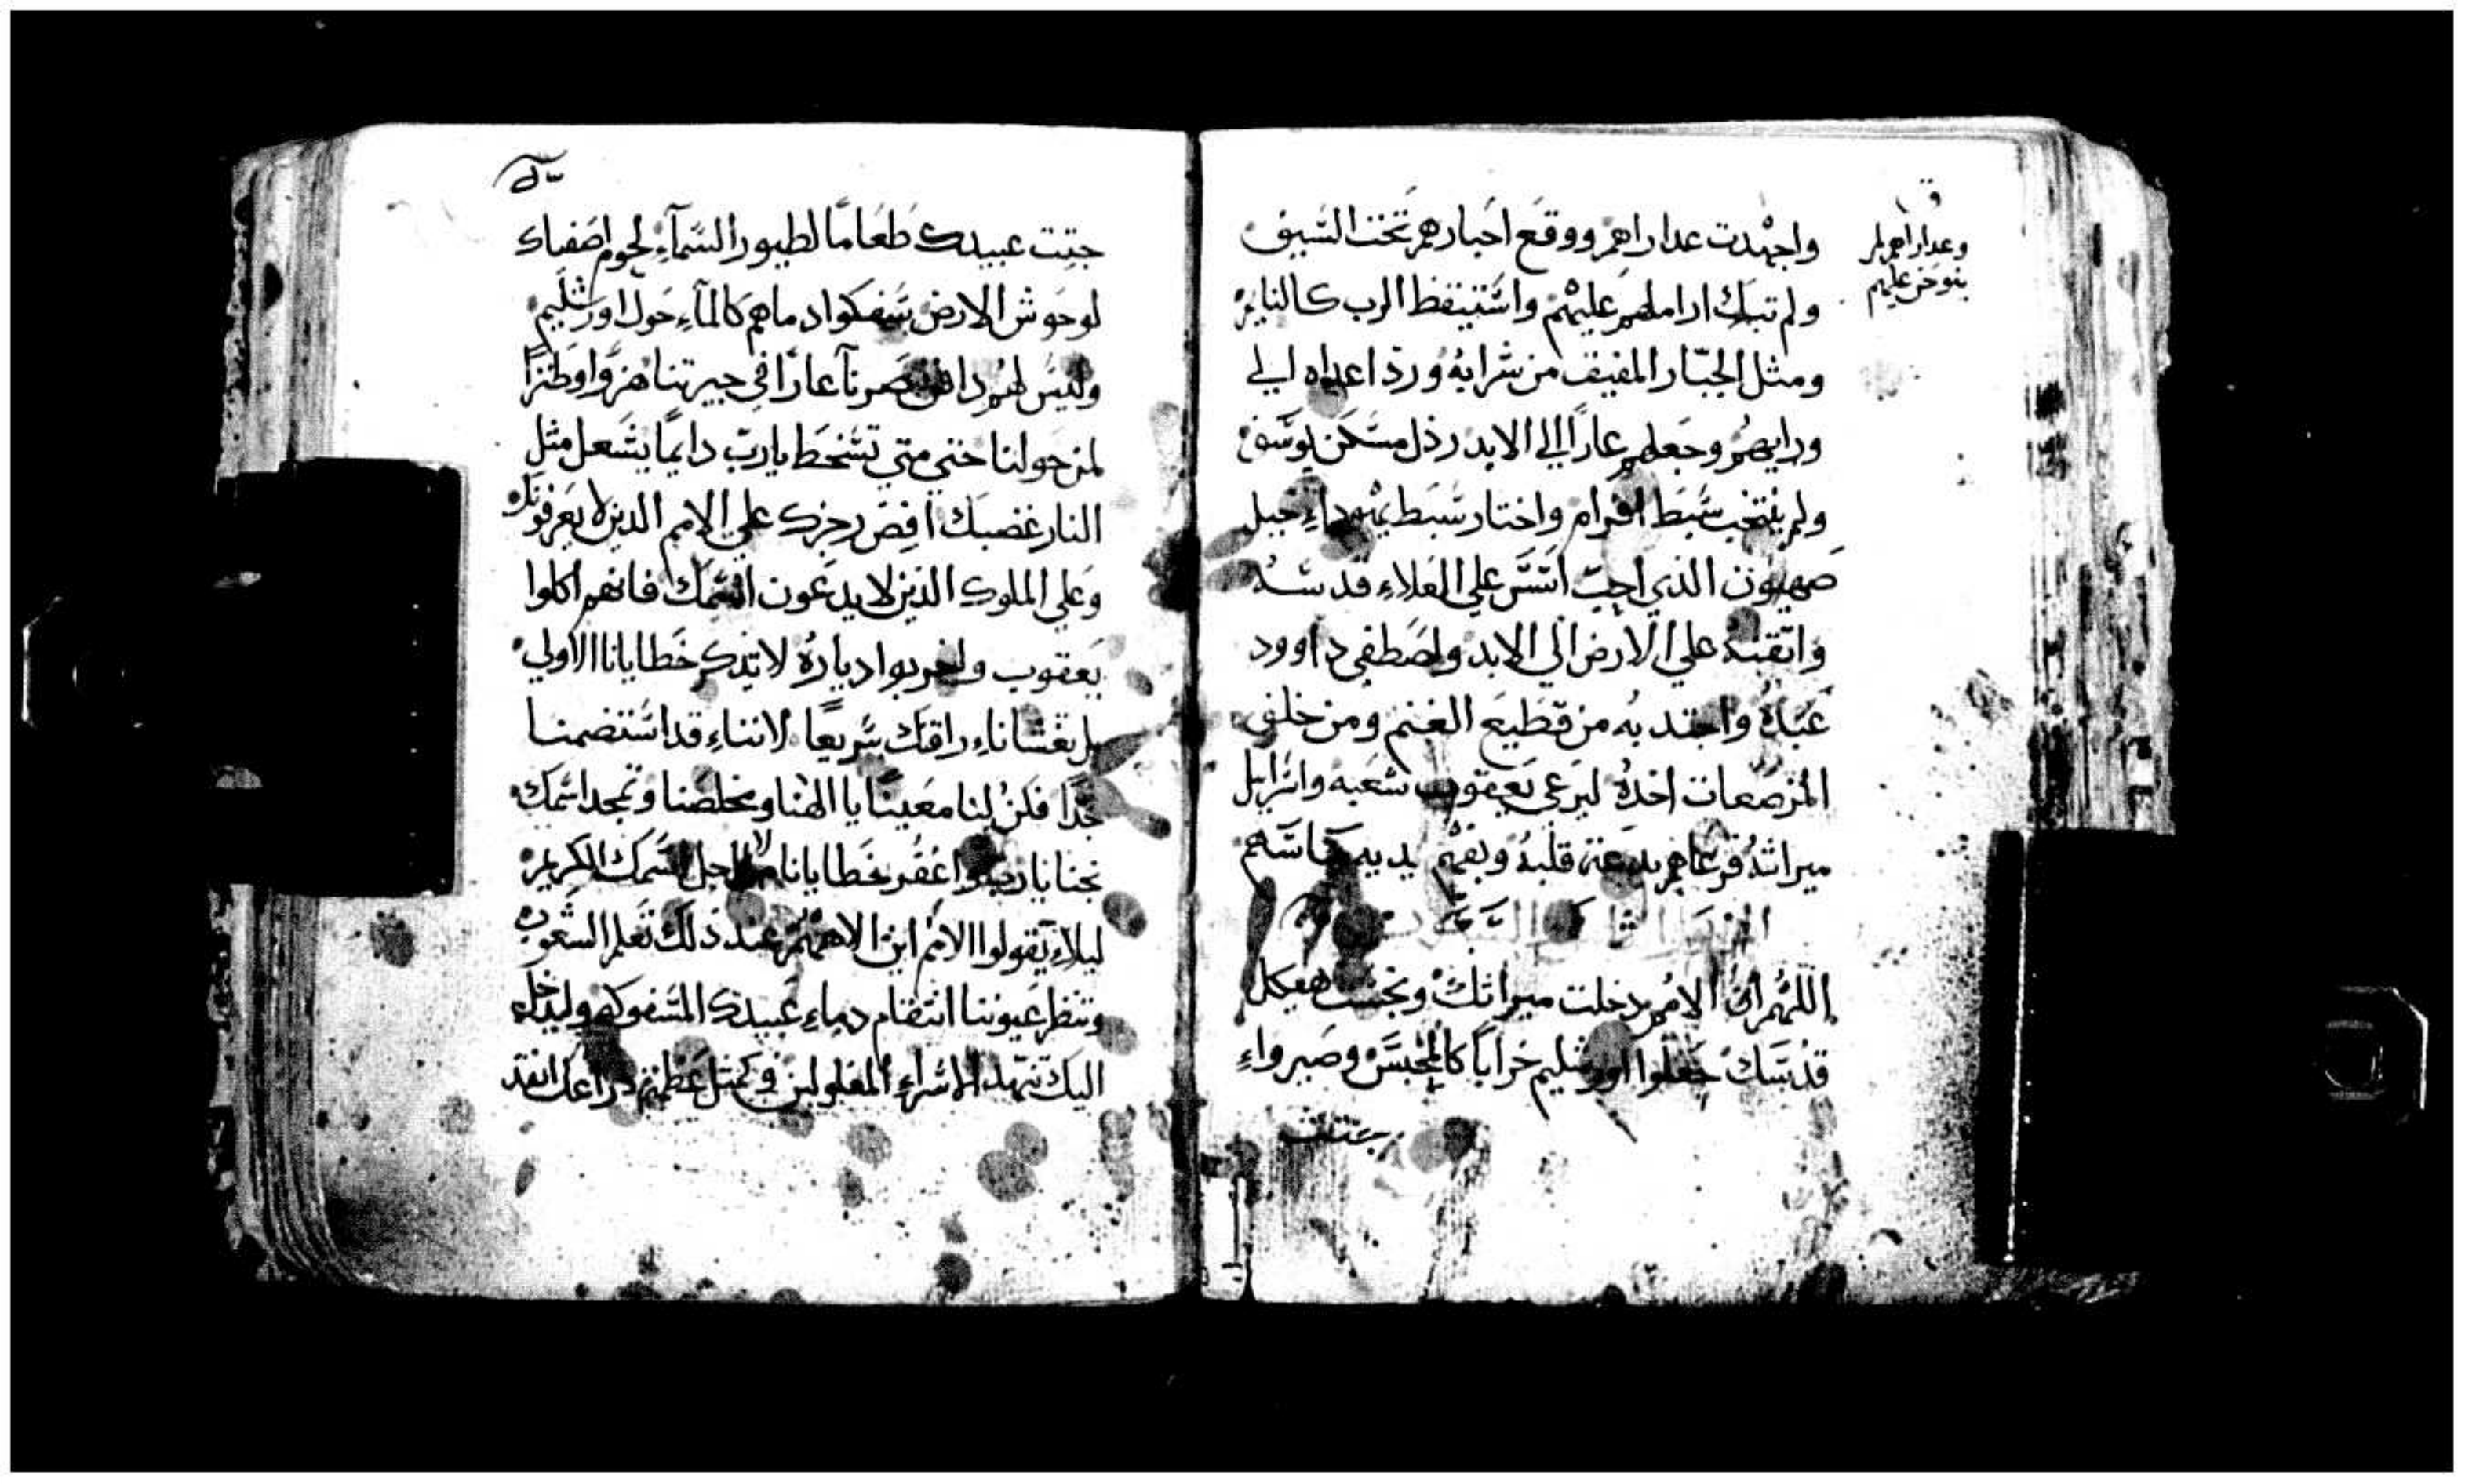 واجهدت عداراهم ووقع احبارهم تحت السيف
وعداراهم لم
ينوحن عليهم
ولم تبك اراملهم عليهم واستيقظ الرب كالنايم
ومثل الجبار المفيق من شرابه ورد اعداه الي
ورايهم وجعلهم عارًا الي الابد رذل مسكن يوسف
ولم ينتخب سبط افرام واختار سبط يهوداء جبل
صهيون الذي احب اسس علي العلاء قدسه
واتقنه علي الارض الي الابد واصطفي داوود
عبده واجتدبه من قطيع الغنم ومن خلف
المرضعات اخده ليرعي يعقوب شعبه واسرايل
ميراثه فرعاهم بدعة قلبه وبفهم يديه ساسهم
اللهم ان الامم دخلت ميراثك ونجست هيكل
قدسك جعلوا اورشليم خرابًا كالمحبس وصيرواء
جتت
جتت عبيدك طعامًا لطيور السمآء لحوم اصفياك
لوحوش الارض سفكوا دماهم كالمآء حول اورشليم
وليس لهم دافن صرنآ عارًا في جيرتنا هزوًا وطنزًا
لمن حولنا حتي متي تسخط يارب دايمًا يشعل مثل
النار غضبك افض رجزك علي الامم الدين لا يعرفونك
وعلي الملوك الذين لا يدعون اسمك فانهم اكلوا
يعقوب واخربوا دياره لا تذكر خطايانا الاولي
بل تغشاناء رافتك سريعًا لانناء قد استضمنا
جدًا فكن لنا معينًا يا الهنا ومخلصنا وتمجد اسمك
نجنا يارب واغفر خطايانا لاجل اسمك الكريم
ليلاء يقولوا الامم اين الاههم عند ذلك تعلم الشعوب
وتنظر عيوننا انتقام دماء عبيدك المسفوكه وليدخل
اليك تنهد الاسراء المغلولين وكمثل عظمة دراعك انقد